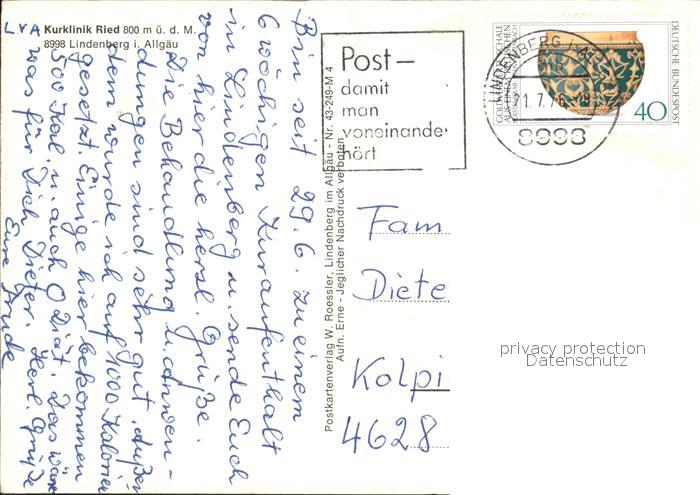 LVA Kurklinik Ried 800 m ü. d. M.
8998 Lindenberg i. Allgäu
Bin seit 29.6. zu einem
6 wöchigen Kuraufenthalt
in Lindenberg u. sende Euch
von hier die herzl. Grüße.
Die Behandlung u. Anwen-
dungen sind sehr gut. Außer
dem wurde ich auf 1000 Kalorien
gesetzt. Einige hier bekommen
500 Kal. u. auch 0 Diät. Das wäre
was für Dich Dieter. Herl. Grüße
Eure Trude
Postkartenverlag W. Roessler, Lindenberg im Allgäu - Nr. 43-249-M 4
Aufn. Erne - Jeglicher Nachdruck verboten
Post –
damit
man
voneinander
hört
LINDENBERG
21.7.76
8998
DEUTSCHE BUNDESPOST
40
Fam
Diete
Kolpi
4628
privacy protection
Datenschutz